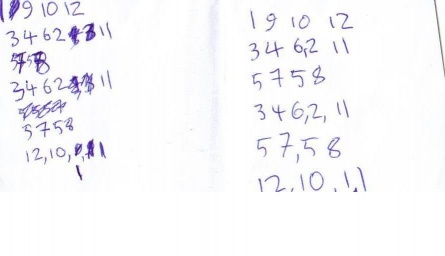 1 9 10 12
3 4 6 2 11
3 4 6 2 11
5 7 5 8
12, 10,
1 9 10 12
3 4 6,2 11
5 7 5 8
3 4 6,2, 11
5 7,5 8
12, 10, 1,1